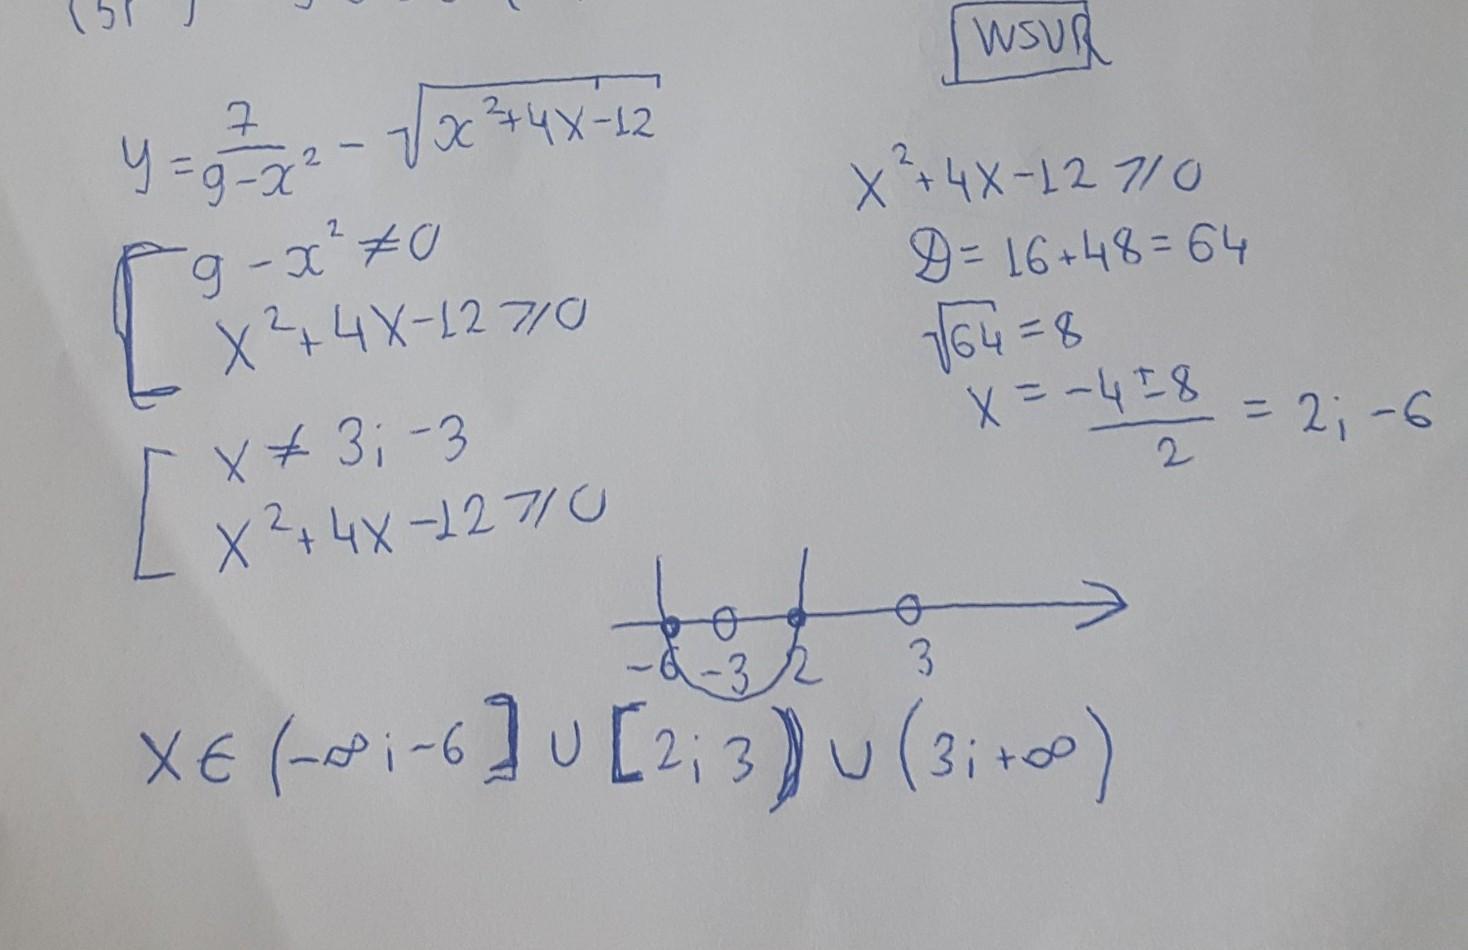 WSUR
y = 7/(9-x²) - √(x²+4x-12)
9-x² ≠ 0
x²+4x-12 ⩾ 0
x ≠ 3; -3
x²+4x-12 ⩾ 0
x²+4x-12 ⩾ 0
D = 16+48 = 64
√64 = 8
x = (-4±8)/2 = 2; -6
-6 -3 2 3
x ∈ (-∞; -6] ∪ [2; 3) ∪ (3; +∞)